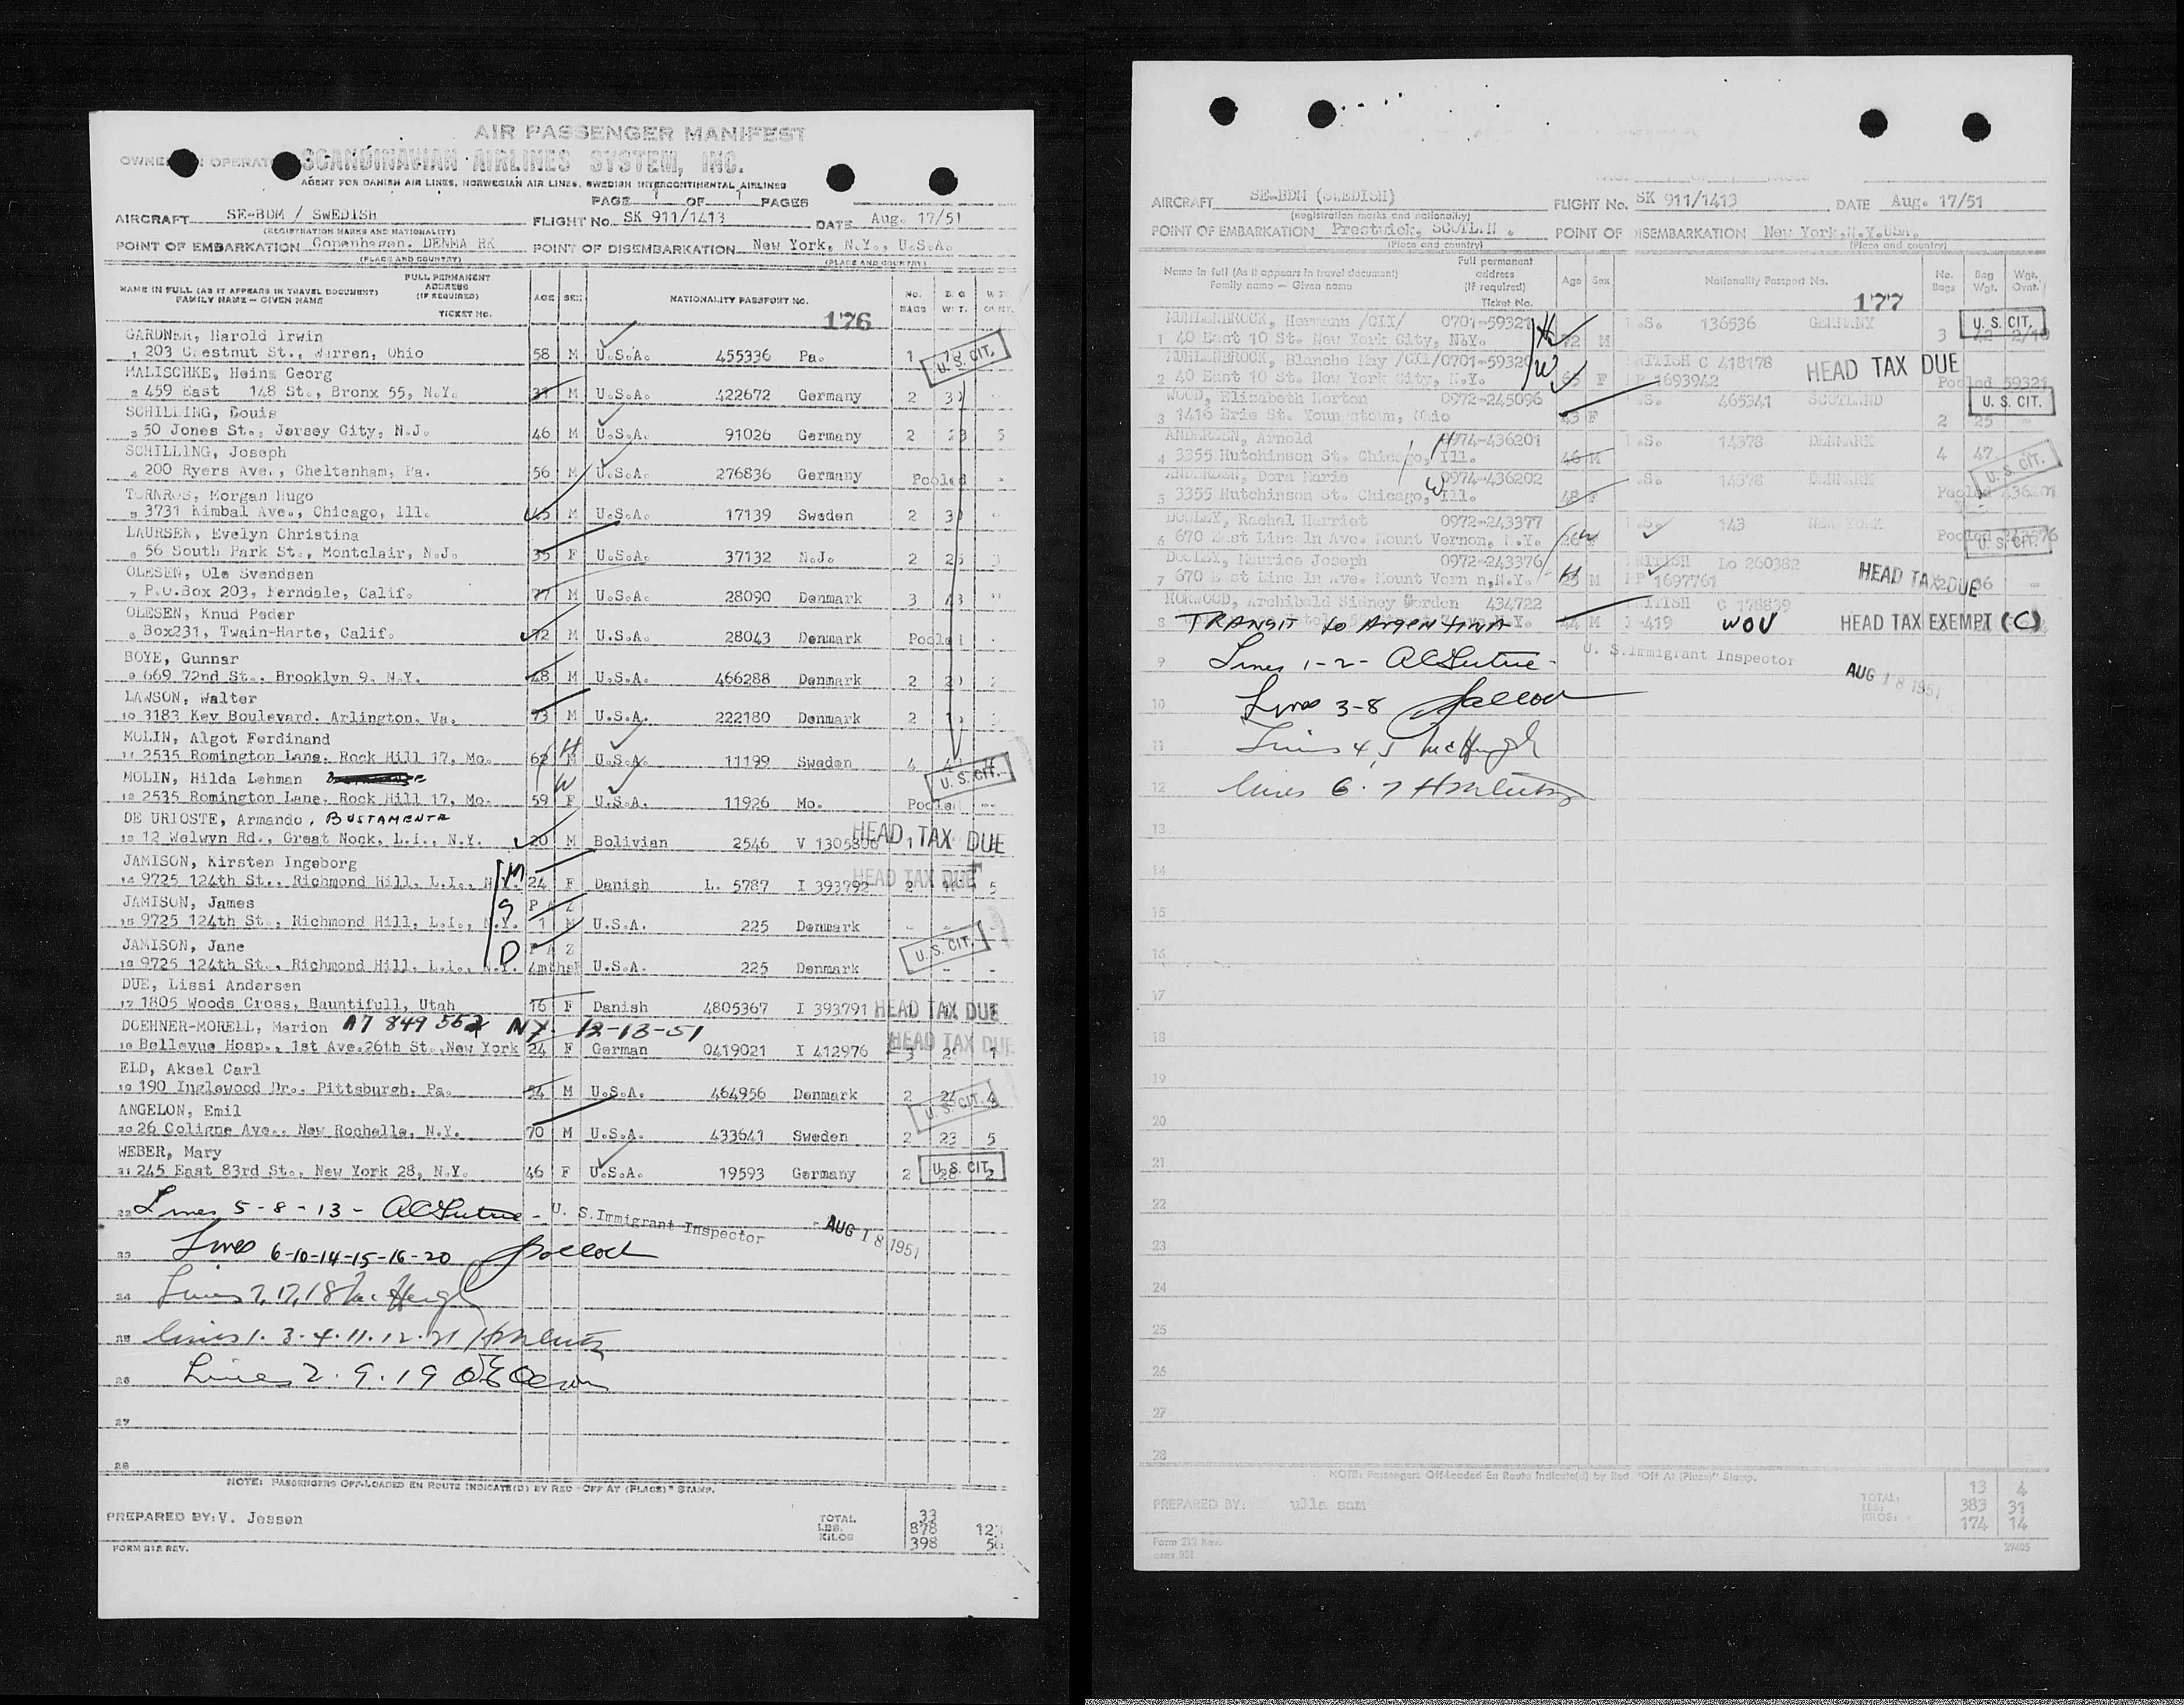 AIR PASSENGER MANIFEST
SCANDINAVIAN AIRLINES SYSTEM, INC.
AGENT FOR DANISH AIR LINES, NORWEGIAN AIR LINES, SWEDISH INTERCONTINENTAL AIRLINES
PAGE 1 OF 1 PAGES
AIRCRAFT SE-BDM / SWEDISH FLIGHT No. SK 911/1413 DATE Aug. 17/51
(REGISTRATION MARKS AND NATIONALITY)
POINT OF EMBARKATION Copenhagen. DENMA RK POINT OF DISEMBARKATION New York, N.Y., U.S.A.
(PLACE AND COUNTRY) (PLACE AND COUNTRY)
FULL PERMANENT
ADDRESS
(IF REQUIRED)
NAME IN FULL (AS IT APPEARS IN TRAVEL DOCUMENT)
FAMILY NAME — GIVEN NAME
TICKET NO.
AGE SEX NATIONALITY PASSPORT NO. No. BAGS
176
GARDNER, Harold Irwin
1 203 Chestnut St., Warren, Ohio 58 M U.S.A. 455336 Pa. 1
U.S. CIT.
MALISCHKE, Heinz Georg
2 459 East 148 St., Bronx 55, N.Y. M U.S.A. 422672 Germany 2
SCHILLING, Louis
3 50 Jones St., Jersey City, N.J. 46 M U.S.A. 91026 Germany 2 5
SCHILLING, Joseph
4 200 Ryers Ave., Cheltenham, Pa. 56 M U.S.A. 276836 Germany Pooled -
TORNROS, Morgan Hugo
5 3731 Kimbal Ave., Chicago, Ill. 45 M U.S.A. 17139 Sweden 2
LAURSEN, Evelyn Christina
6 56 South Park St., Montclair, N.J. 35 F U.S.A. 37132 N.J. 2
OLESEN, Ole Svendsen
7 P.O.Box 203, Ferndale, Calif. 77 M U.S.A. 28090 Denmark 3
OLESEN, Knud Peder
8 Box231, Twain-Harte, Calif. 72 M U.S.A. 28043 Denmark Pooled
BOYE, Gunnar
9 669 72nd St.. Brooklyn 9. N.Y. 48 M U.S.A. 466288 Denmark 2
LAWSON, Walter
10 3183 Key Boulevard. Arlington. Va. 73 M U.S.A. 222180 Denmark 2
MOLIN, Algot Ferdinand H
11 2535 Romington Lane. Rock Hill 17, Mo. 62 M U.S.A. 11199 Sweden 4
MOLIN, Hilda Lehman W U.S. CIT.
12 2535 Romington Lane. Rock Hill 17, Mo. 59 F U.S.A. 11926 Mo. Pooled --
DE URIOSTE, Armando, BUSTAMENTE
13 12 Welwyn Rd., Great Neck, L.I., N.Y. 20 M Bolivian 2546 V 1305806 1
HEAD TAX DUE
JAMISON, Kirsten Ingeborg
14 9725 124th St.. Richmond Hill, L.I., N.Y. 24 F Danish L. 5787 I 393792 2 5
HEAD TAX DUE
JAMISON, James S P A Z
15 9725 124th St., Richmond Hill, L.I., N.Y. 1 M U.S.A. 225 Denmark
JAMISON, Jane D P A Z U.S. CIT.
16 9725 124th St., Richmond Hill, L.I., N.Y. 4mths F U.S.A. 225 Denmark - - -
DUE, Lissi Andersen
17 1805 Woods Cross, Bauntifull, Utah 16 F Danish 4805367 I 393791 HEAD TAX DUE
DOEHNER-MORELL, Marion A7 849 562 NY. 12-13-51
18 Bellevue Hosp., 1st Ave.26th St.,New York 24 F German 0419021 I 412976 3 1
HEAD TAX DUE
ELD, Aksel Carl
19 190 Inglewood Dr.. Pittsburgh. Pa. 54 M U.S.A. 464956 Denmark 2
U.S. CIT.
ANGELON, Emil
20 26 Coligne Ave.. New Rochelle, N.Y. 70 M U.S.A. 433641 Sweden 2 23 5
WEBER, Mary
21 245 East 83rd St., New York 28, N.Y. 46 F U.S.A. 19593 Germany 2 28 2
U.S. CIT.
22 Lines 5-8-13- U. S.Immigrant Inspector AUG 18 1951
23 Lines 6-10-14-15-16-20 Pollock
24 Lines 7, 17, 18 McHugh
25 lines 1. 3. 4. 11. 12. 21
26 Lines 2. 9. 19
27
28
NOTE: PASSENGERS OFF-LOADED EN ROUTE INDICATE(D) BY RED "OFF AT (PLACE)" STAMP.
PREPARED BY: V. Jessen
TOTAL 33
LBS. 878
KILOS 398
FORM 212 REV.
AIRCRAFT SE-BDM (SWEDISH) FLIGHT No. SK 911/1413 DATE Aug. 17/51
(Registration marks and nationality)
POINT OF EMBARKATION Prestwick, POINT OF DISEMBARKATION New York,N.Y.USA.
(Place and country) (Place and country)
Name in full (As it appears in travel document)
Family name — Given name
Full permanent
address
(If required)
Ticket No.
Age Sex Nationality Passport No. No. Bags Bag Wgt. Wgt. Ovnt.
177
MUHLENBROCK, Hermann /CIX/ 0701-59321 U.S. 136536 GERMANY
1 40 East 10 St. New York City, N.Y. 72 M 3
U.S. CIT.
MUHLENBROCK, Blanche May /CIX/0701-59320 W BRITISH C 418178
2 40 East 10 St. New York City, N.Y. 65 F 1693942 HEAD TAX DUE Pooled 59321
WOOD, Elizabeth Norton 0972-245096 U.S. 465341 SCOTLAND
3 1416 Erie St. Youngstown, Ohio 43 F 2 25
U.S. CIT.
ANDERSEN, Arnold 0974-436201 U.S. 14378 DENMARK
4 3355 Hutchinson St. Chicago, Ill. 46 M 4 47
ANDERSEN, Dora Marie 0974-436202 U.S. 14378 DENMARK
5 3355 Hutchinson St. Chicago, Ill. 48 F Pooled 436201
U.S. CIT.
DOOLEY, Rachel Harriet 0972-243377 U.S. 143 NEW YORK
6 670 East Lincoln Ave. Mount Vernon, N.Y. 26
U.S. CIT.
DOOLEY, Maurice Joseph 0972-243376 BRITISH Lo 260382
7 670 East Lincoln Ave. Mount Vernon,N.Y. H 25 M 1697761 HEAD TAX DUE
HORWOOD, Archibald Sidney Gordon 434722 BRITISH C 176839
8 TRANSIT to ARGENTINA 44 M 419 WOV HEAD TAX EXEMPT (C)
9 Lines 1-2- U. S.Immigrant Inspector AUG 18 1951
10 Lines 3-8 Pollock
11 Lines 4, 5 McHugh
12 lines 6. 7
13
14
15
16
17
18
19
20
21
22
23
24
25
26
27
28
NOTE: Passengers Off-Loaded En Route Indicate(d) by Red "Off At (Place)" Stamp.
PREPARED BY: ulla sam
TOTAL: 13 4
LBS: 383 31
KILOS: 174 14
Form 212 Rev.